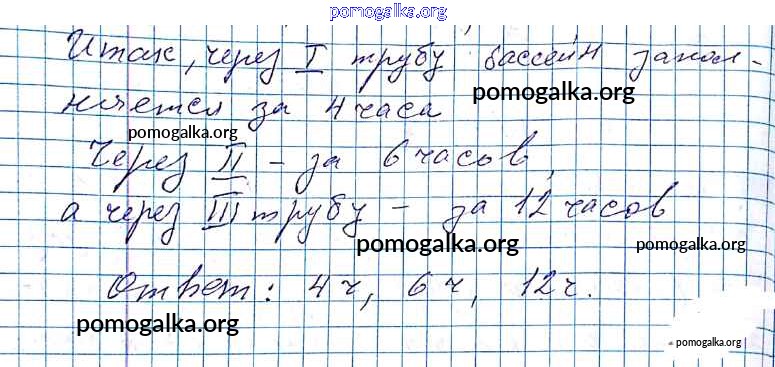 pomogalka.org
Итак, через I трубу бассейн запол-
няется за 4 часа
pomogalka.org
pomogalka.org
Через II - за 6 часов,
а через III трубу - за 12 часов
pomogalka.org
pomogalka.org
Ответ: 4 ч, 6 ч, 12 ч.
pomogalka.org
pomogalka.org